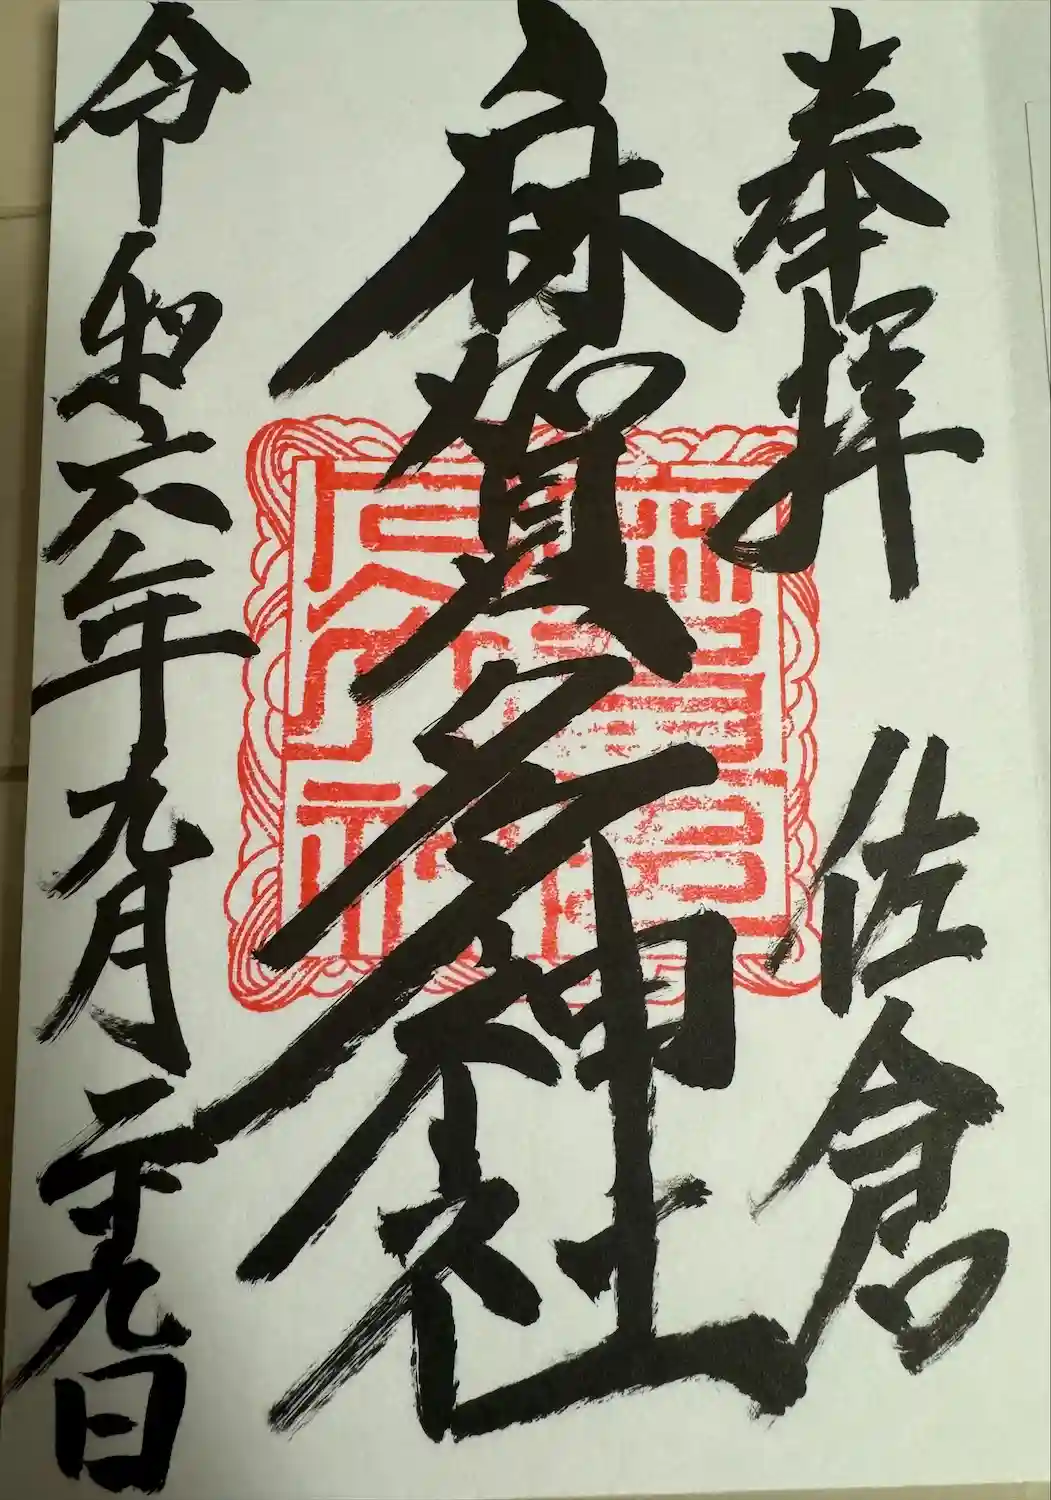 奉拝　佐倉
麻賀多神社
令和六年九月二十九日